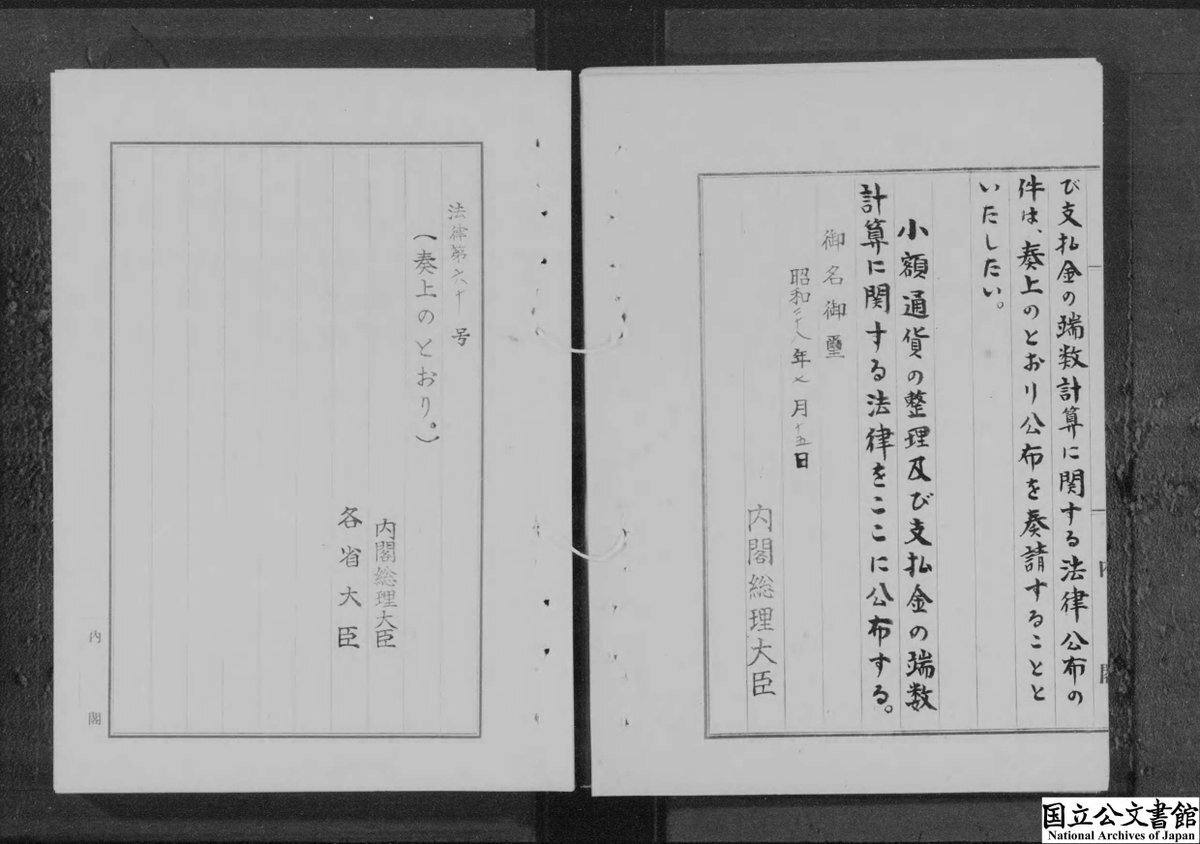 び支払金の端数計算に関する法律公布の
件は、奏上のとおり公布を奏請することと
いたしたい。
小額通貨の整理及び支払金の端数
計算に関する法律をここに公布する。
御名御璽
昭和二十八年七月十五日
内閣総理大臣
内閣
法律第六十号
（奏上のとおり。）
内閣総理大臣
各省大臣
内閣
国立公文書館
National Archives of Japan